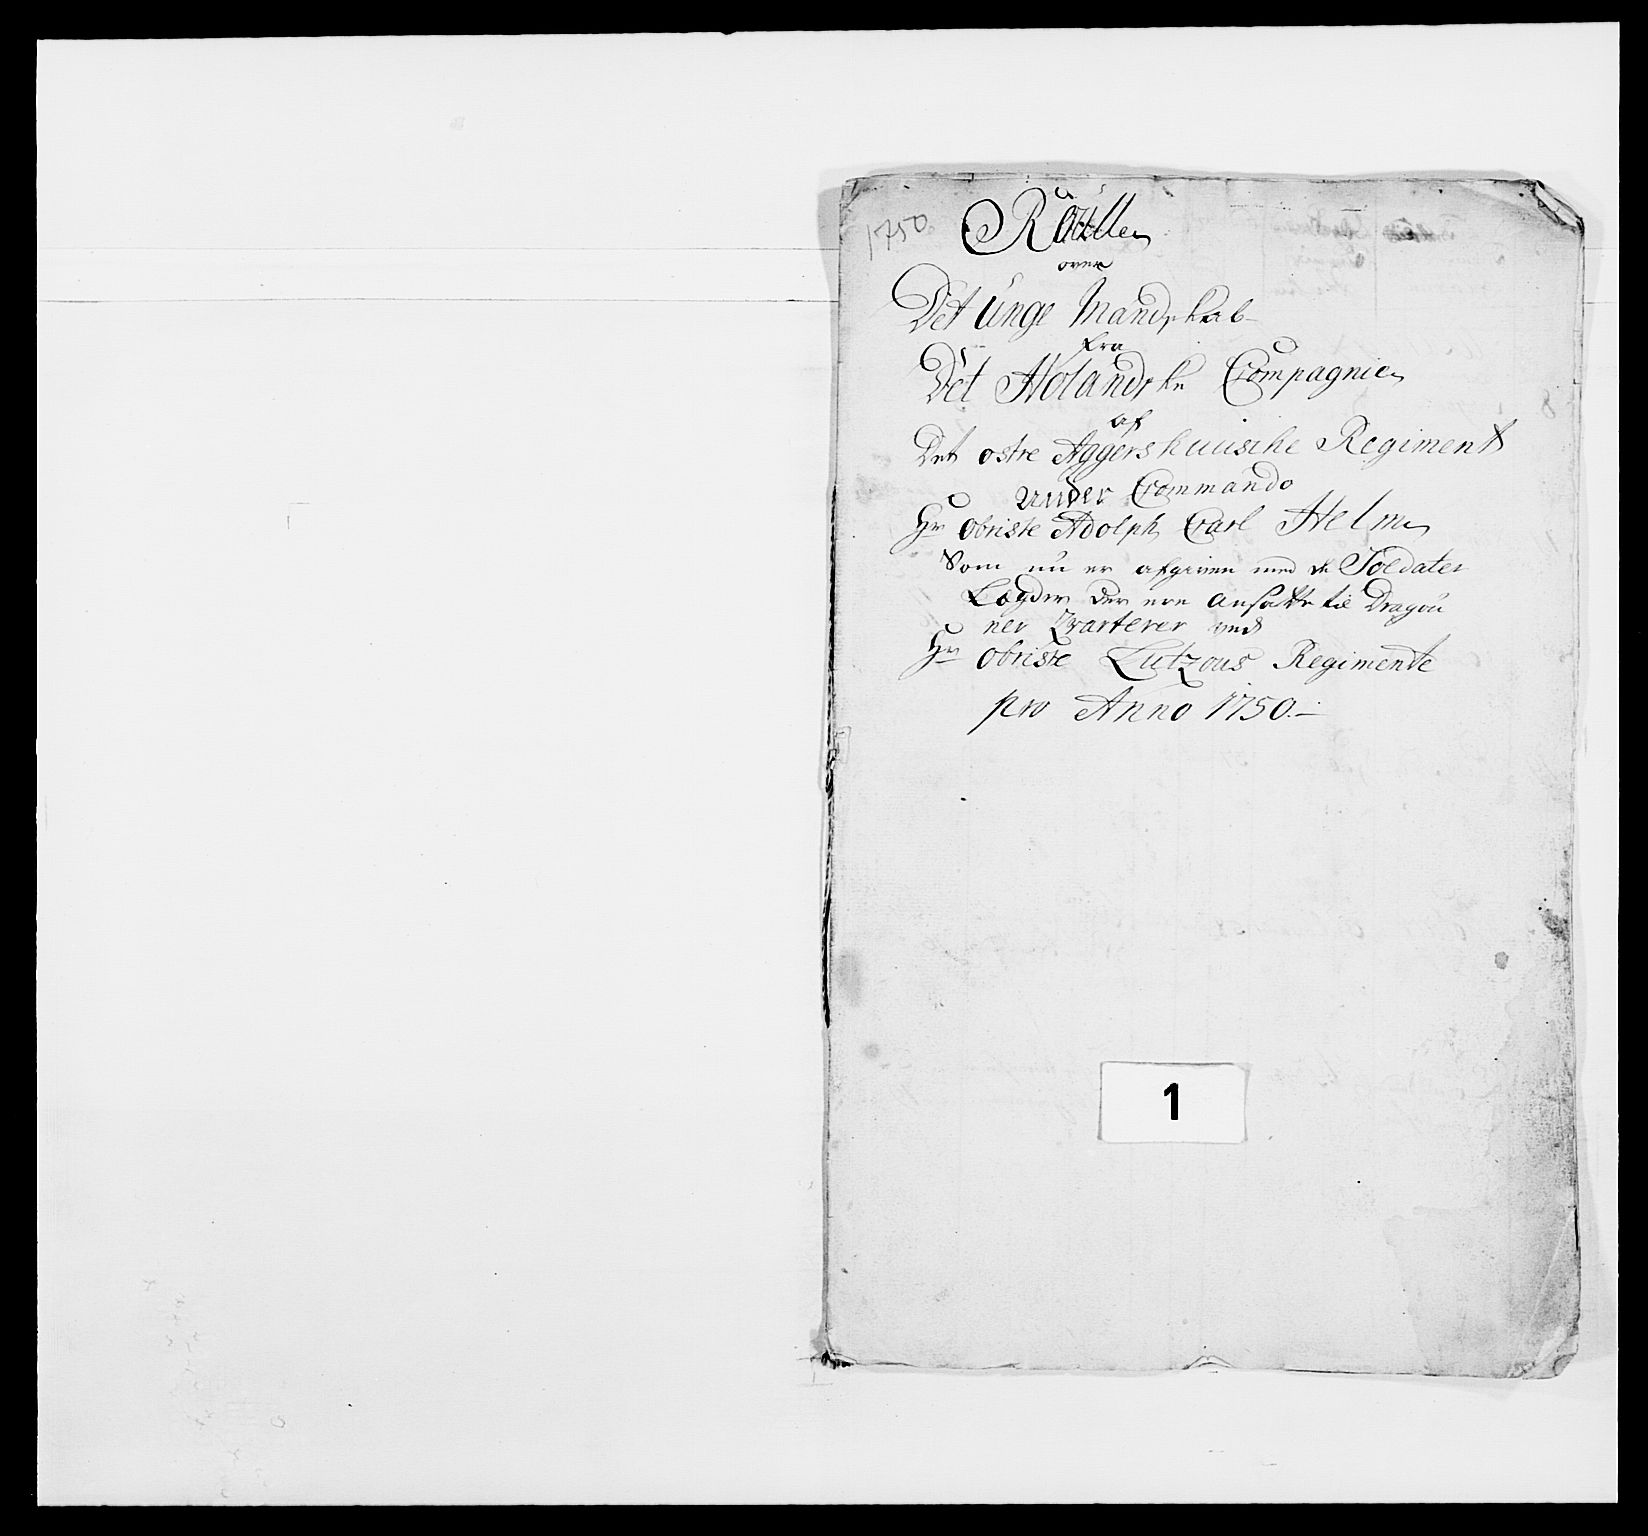 1750
Roulle
over
Det Unge Mandskab
fra
Det Holandske Compagnie
af
Det ostre Aggershuusiske Regiment
Under Commando
Hr Obriste Adolph Carl Helm
Som nu er afgiven med de Soldater
Lægder der ere Ansatte til Dragou
ner Qvarterer ved
Hr Obriste Lutzous Regimente
pro Anno 1750.—
1